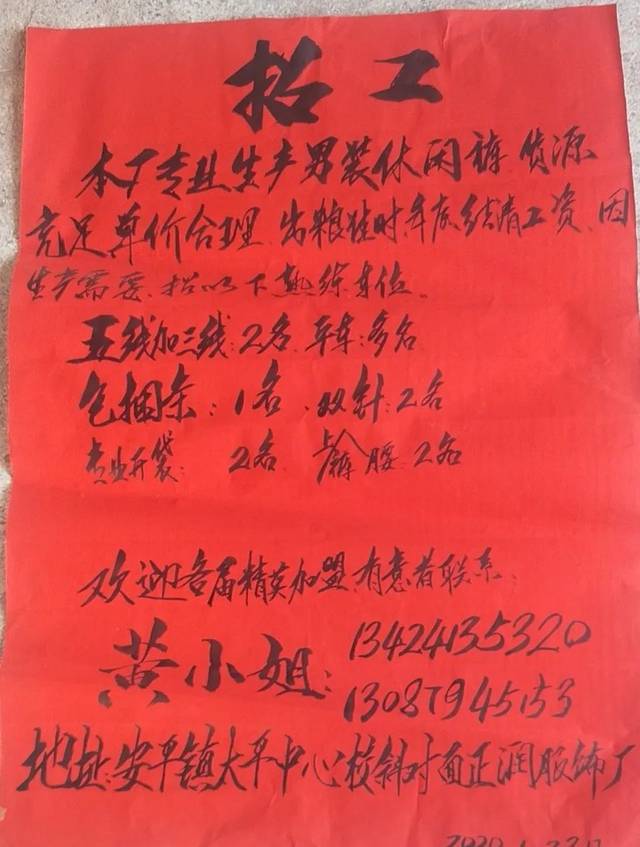 招工
本厂专业生产男装休闲裤,货源
充足,单价合理,出粮准时,年底结清工资,因
生产需要,招以下熟练车位。
五线加三线:2名、平车:多名
包捆条:1名、双针:2名
专业开袋:2名、上裤腰:2名
欢迎各届精英加盟,有意者联系:
黄小姐:13424135320
13087945153
地址:安平镇大平中心校斜对面正润服饰厂